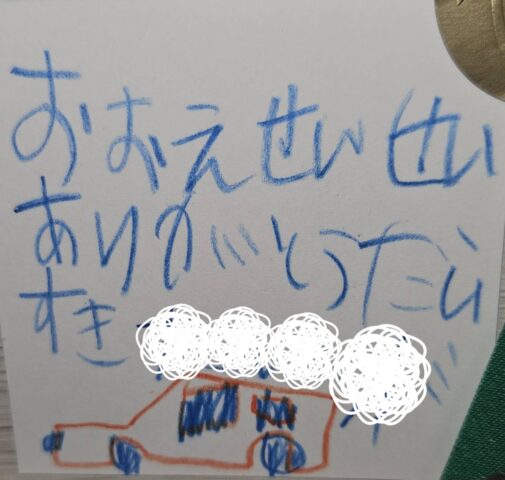 おおえせいせい
ありがとうだい
すき